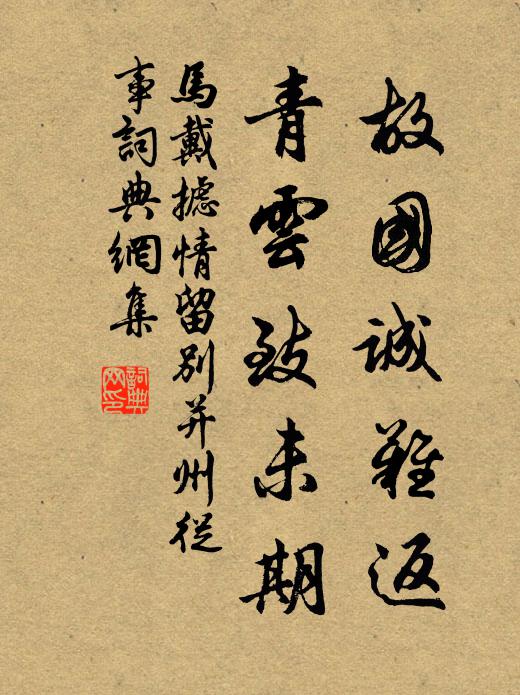 故國誠難返
青雲致未期
馬戴攄情留別并州從
事詞典網集
詞典
网印